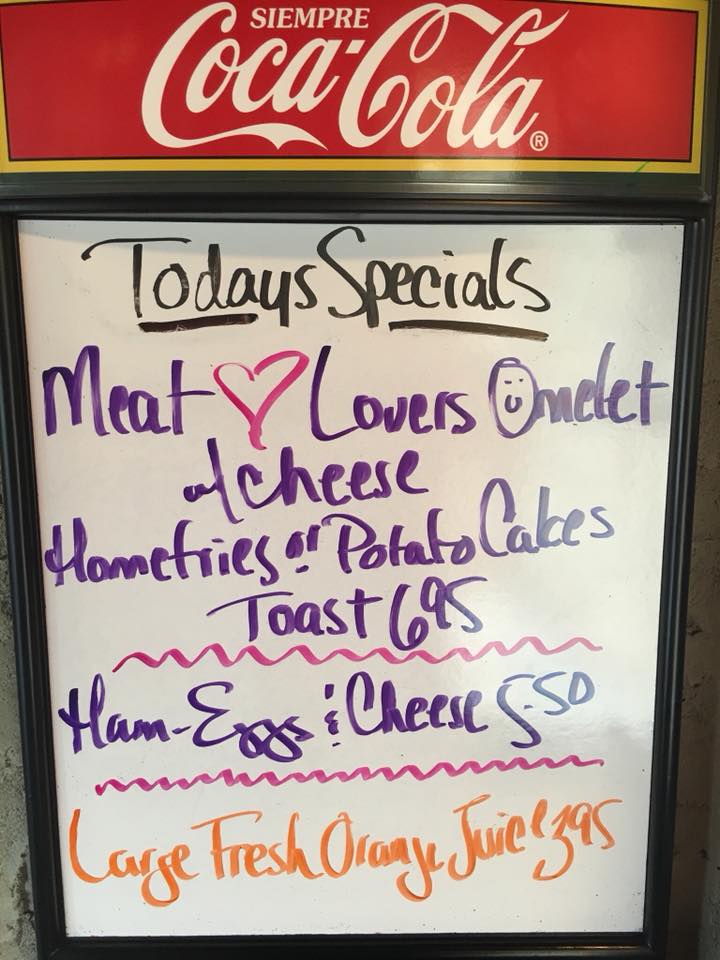 SIEMPRE
Coca-Cola®
Todays Specials
Meat Lovers Omelet
w/cheese
Homefries or Potato Cakes
Toast 695
Ham-Eggs & Cheese 5.50
Large Fresh Orange Juice 395